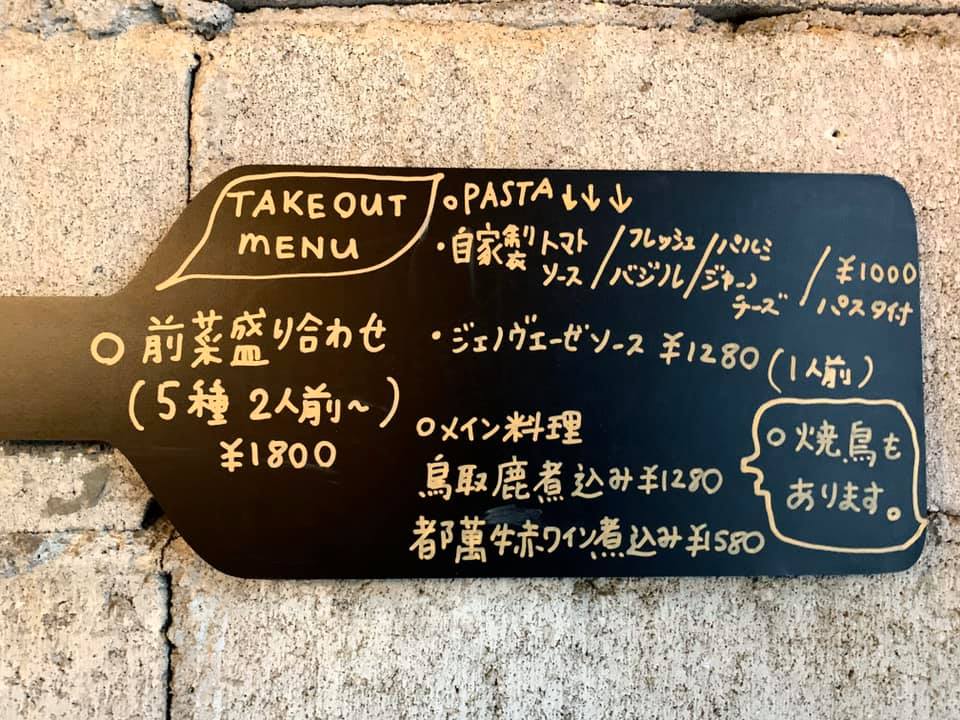 TAKE OUT
MENU
○前菜盛り合わせ
(5種 2人前~)
¥1800
○PASTA↓↓↓
・自家製トマトソース/フレッシュバジル/パルミジャーノチーズ/¥1000パスタ付
・ジェノヴェーゼソース ¥1280(1人前)
○メイン料理
鳥取鹿煮込み¥1280
都萬牛赤ワイン煮込み¥1580
○焼鳥も
あります。